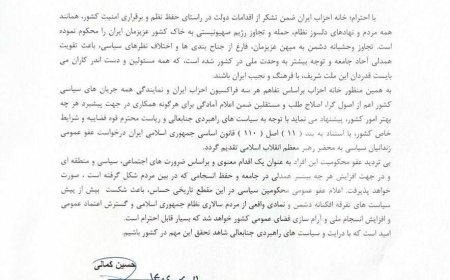 با احترام؛ خانه احزاب ایران ضمن تشکر از اقدامات دولت در راستای حفظ نظم و برقراری امنیت کشور، همانند
همه مردم و نهادهای دلسوز نظام، حمله و تجاوز رژیم صهیونیستی به خاک کشور عزیزمان ایران را محکوم نموده
است. تجاوز وحشیانه دشمن به میهن عزیزمان، فارغ از جناح بندی ها و اختلاف نظرهای سیاسی، باعث تقویت
همدلی آحاد جامعه و توجه بیشتر به وحدت ملی در کشور شده است، که همه مسئولین و دست اندر کاران می
بایست قدردان این ملت شریف، با فرهنگ و نجیب ایران باشند.
به همین منظور خانه احزاب براساس تفاهم هر سه فراکسیون احزاب ایران و نمایندگی همه جریان های سیاسی
کشور اعم از اصول گرا، اصلاح طلب و مستقلین ضمن اعلام آمادگی برای هرگونه همکاری در جهت پیشبرد هر چه
بهتر امور کشور، پیشنهاد می نماید با توجه به سیاست های راهبردی جنابعالی و ریاست محترم قوه قضاییه و شرایط
خاص کشور، با استناد به بند (۱۱) اصل (۱۱۰) قانون اساسی جمهوری اسلامی ایران درخواست عفو عمومی
زندانیان سیاسی به محضر رهبر معظم انقلاب اسلامی تقدیم گردد.
بی تردید عفو محکومیت این افراد به عنوان یک اقدام معنوی و براساس ضرورت های اجتماعی، سیاسی و منطقه ای
و در جهت افزایش هر چه بیشتر همدلی در جامعه و حفظ انسجامی که در بین مردم شکل گرفته است، صورت
خواهد پذیرفت. اعلام عفو عمومی محکومین سیاسی در این مقطع تاریخی حساس، باعث شکست بیش از پیش
سیاست های تفرقه افکنانه دشمن و نمادی واقعی از مردم سالاری نظام جمهوری اسلامی و گسترش اعتماد عمومی
و افزایش انسجام ملی و آرام سازی فضای عمومی کشور خواهد شد که بسیار قابل احترام است.
امید است که با درایت و سیاست های راهبردی جنابعالی شاهد تحقق این مهم در کشور باشیم.
حسین کمالی